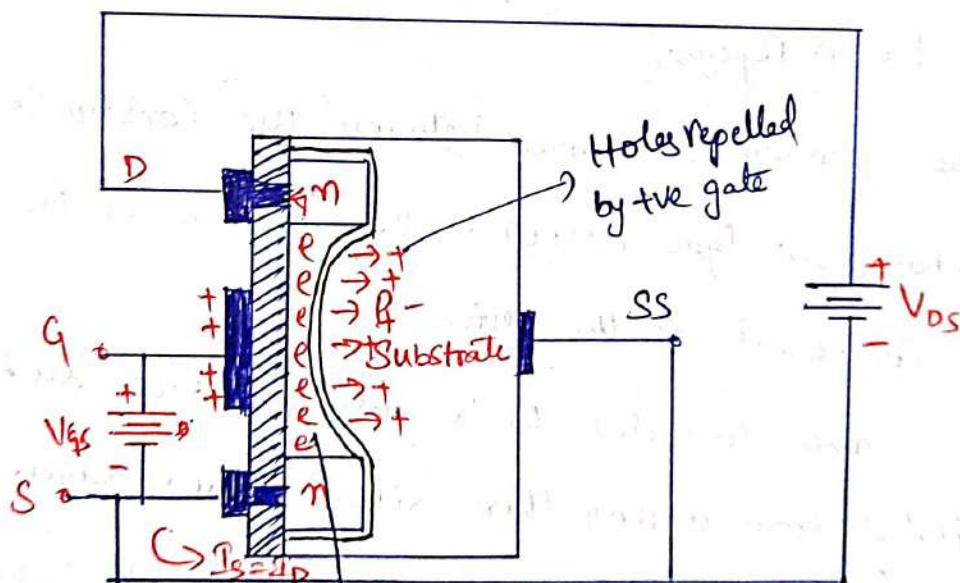 D
n
Holes repelled
by +ve gate
e
e
e
e
e
e
e
→ +
→ +
→ P-
→ +
Substrate
→ +
→ +
+
+
+
+
G
+
VGS
-
S
n
SS
+
VDS
-
IS = ID